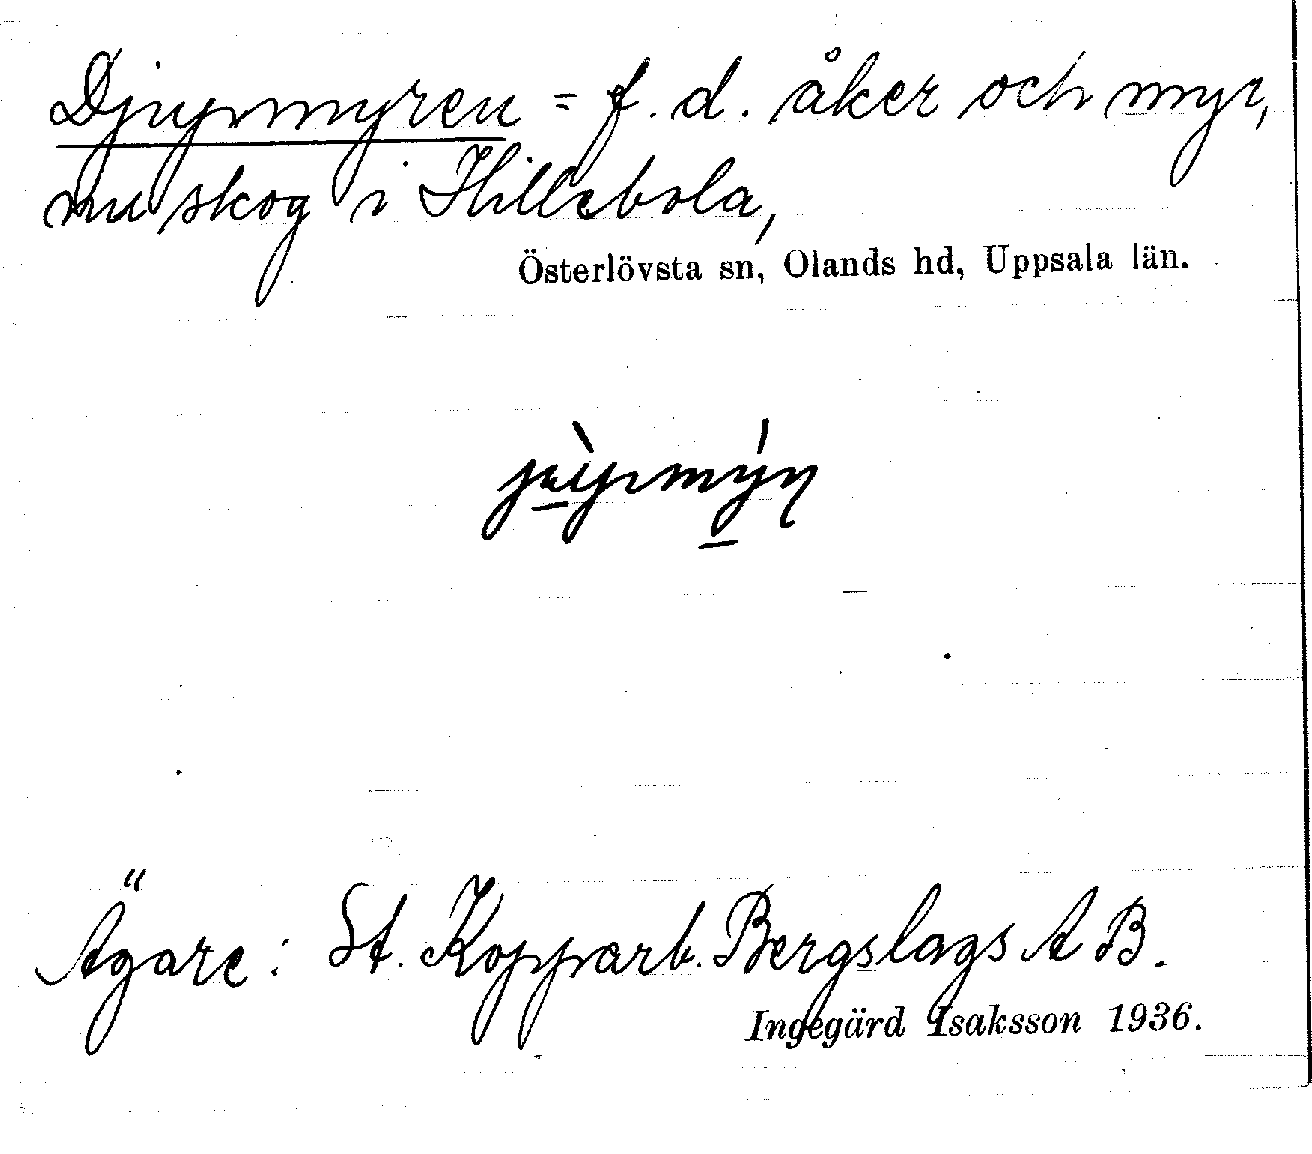 Djupmyren = f. d. åker och myr,
nu skog i Hillebola,
Österlövsta sn, Olands hd, Uppsala län.
Ägare: St. Kopparb. Bergslags A B.
Ingegärd Isaksson 1936.